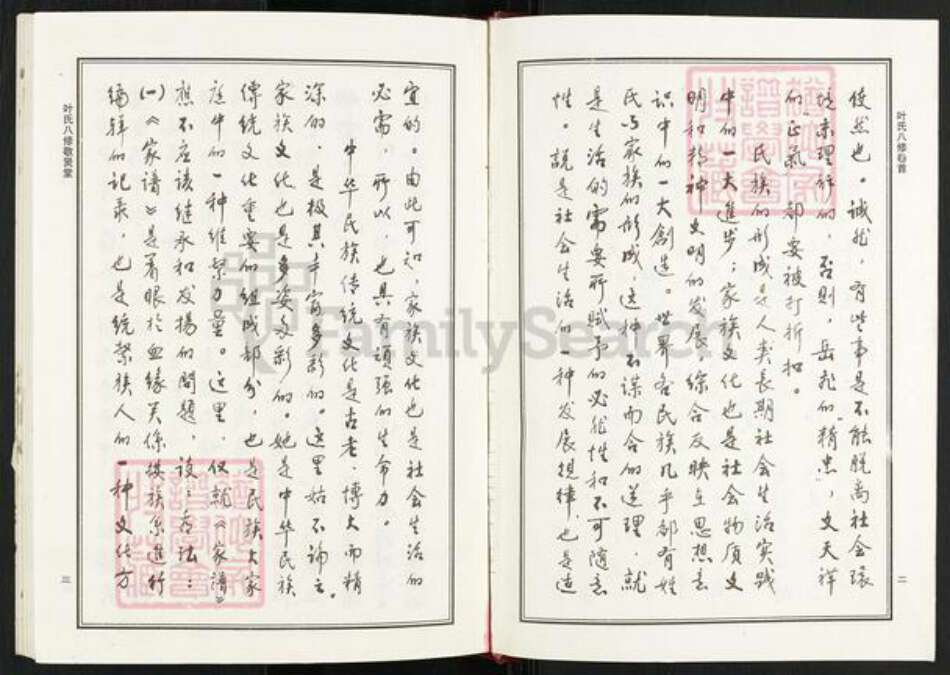 叶氏八修卷首
使然也。诚然，有些事是不能脱离社会环
境来理解的，否则，岳飞的“精忠”，文天祥
的“正氣”都要被打折扣。
民族的形成是人类長期社会生活实践
中的一大進步；家族文化也是社会物质文
明和精神文明的发展综合反映在思想意
识中的一大創造。世界各民族几乎都有姓
民与家族的形成，这种不谋而合的道理，就
是生活的需要所赋予的必然性和不可随意
性。說是社会生活的一种发展規律，也是适
二
宜的。由此可知，家族文化也是社会生活的
必需，所以，也具有顽强的生命力。
中华民族传统文化是古老、博大而精
深的，是极其丰富多彩的。这里姑不論之。
家族文化也是多姿多彩的。她是中华民族
傳统文化重要的组成部分，也是民族大家
庭中的一种维系力量。这里，仅就《家譜》
應不应該继承和发揚的問題，談：看法：
(一)《家谱》是着眼於血缘关係按族系進行
编辑的记录，也是统系族人的一种文化方
叶氏八修敬贤堂
三
FamilySearch